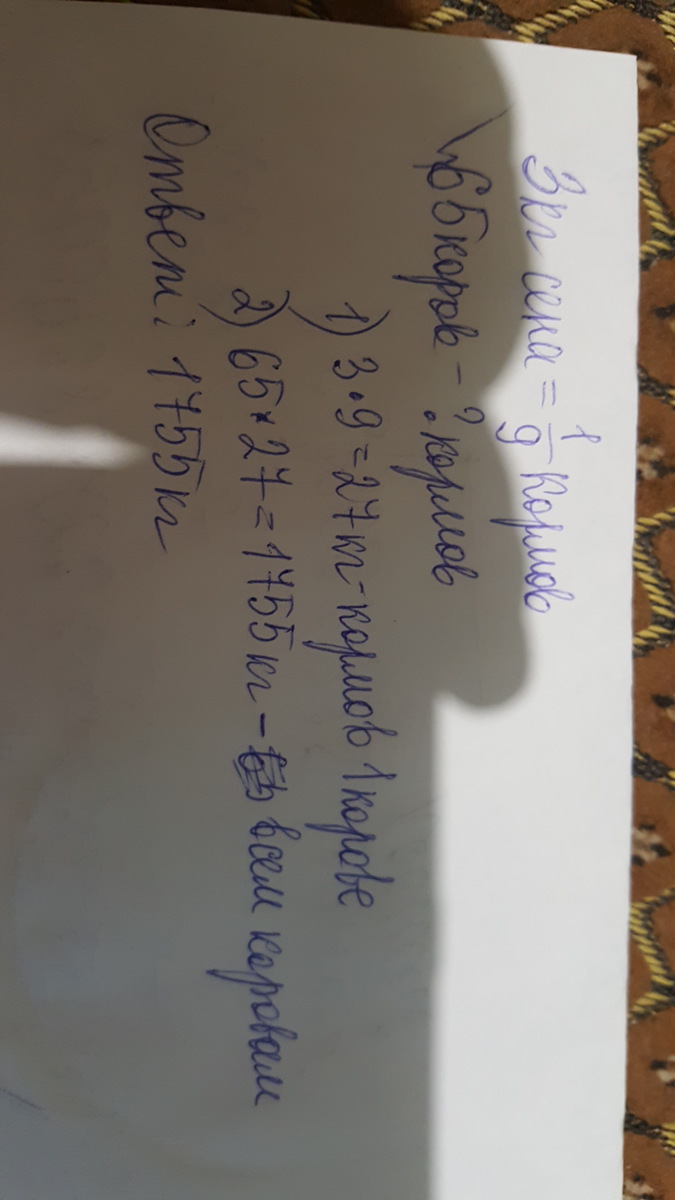 3кг сена = 1/9 кормов
65 коров - ? кормов
1) 3·9=27кг-кормов 1 корове
2) 65*27=1755кг- всем коровам
Ответ: 1755кг